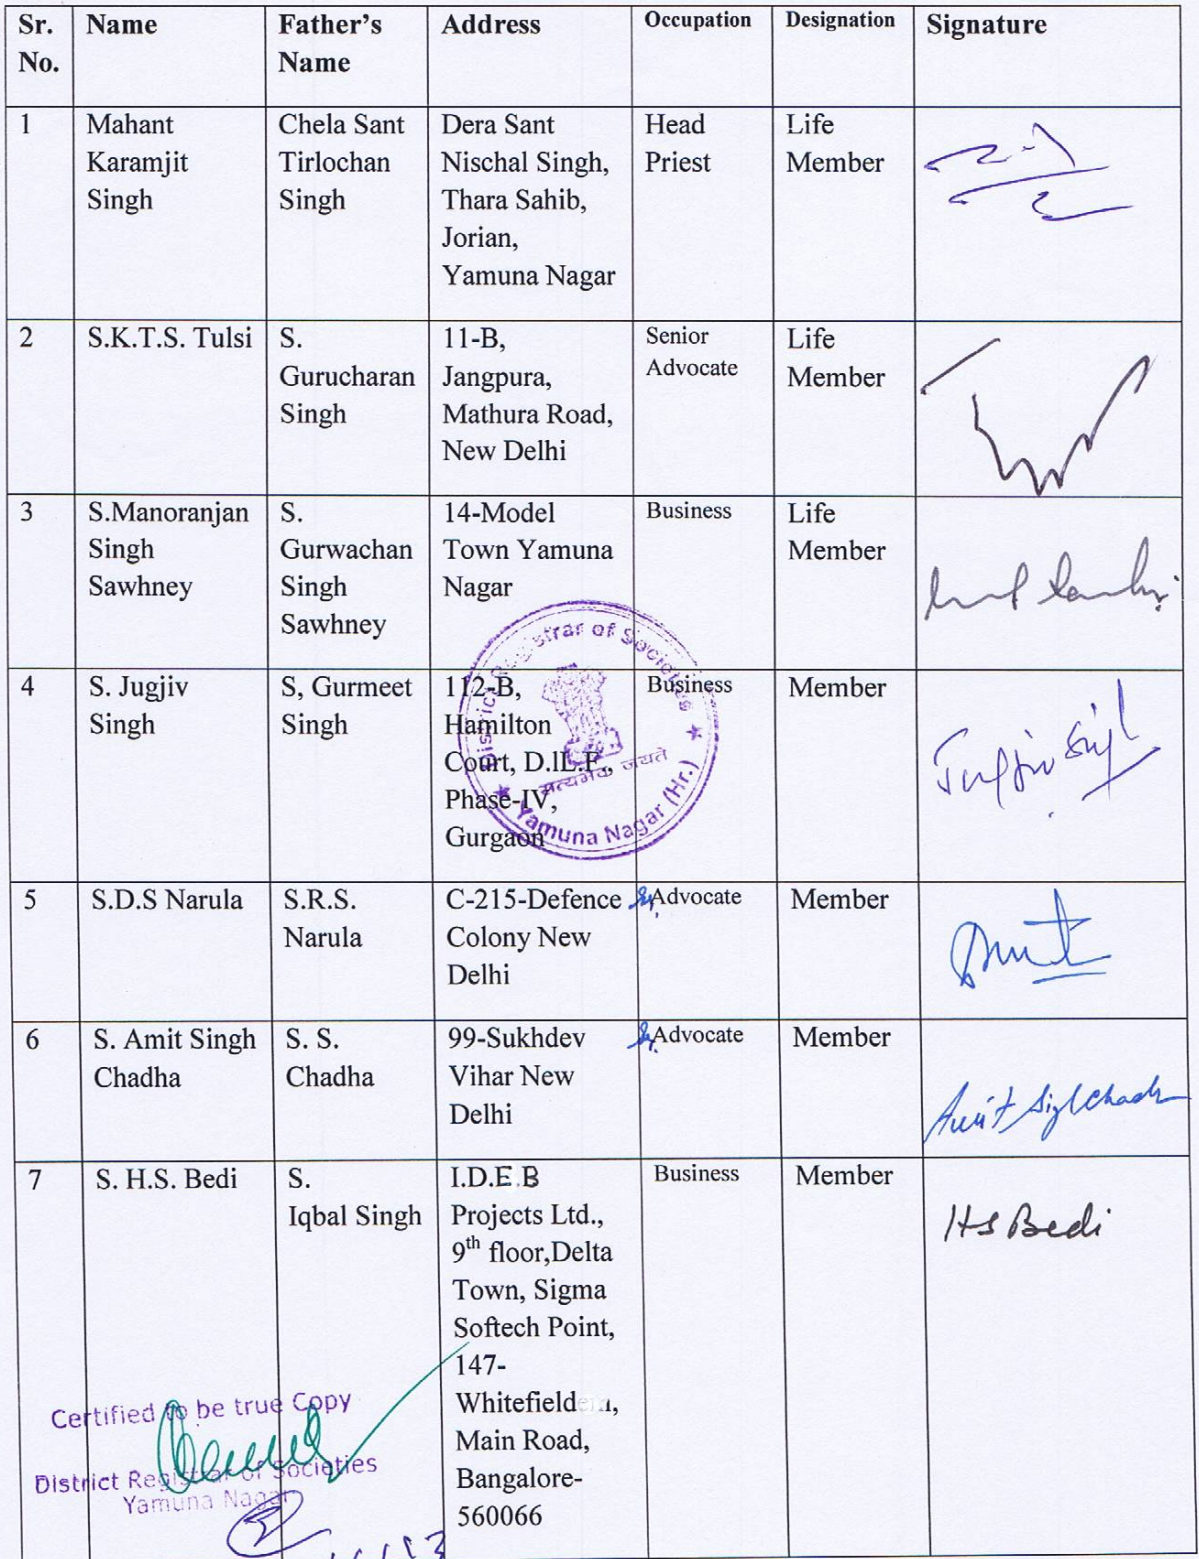 Sr. No. Name Father's Name Address Occupation Designation Signature
1 Mahant Karamjit Singh Chela Sant Tirlochan Singh Dera Sant Nischal Singh, Thara Sahib, Jorian, Yamuna Nagar Head Priest Life Member
2 S.K.T.S. Tulsi S. Gurucharan Singh 11-B, Jangpura, Mathura Road, New Delhi Senior Advocate Life Member
3 S.Manoranjan Singh Sawhney S. Gurwachan Singh Sawhney 14-Model Town Yamuna Nagar Business Life Member
4 S. Jugjiv Singh S, Gurmeet Singh 112-B, Hamilton Court, D.lL.F., Phase-IV, Gurgaon Business Member Jugjiv Singh
District Registrar of Societies
सत्यमेव जयते
Yamuna Nagar (Hr.)
5 S.D.S Narula S.R.S. Narula C-215-Defence Colony New Delhi Advocate Member
6 S. Amit Singh Chadha S. S. Chadha 99-Sukhdev Vihar New Delhi Advocate Member Amit Singh Chadha
7 S. H.S. Bedi S. Iqbal Singh I.D.E.B Projects Ltd., 9th floor,Delta Town, Sigma Softech Point, 147-Whitefield, Main Road, Bangalore-560066 Business Member HS Bedi
Certified to be true Copy
District Registrar of Societies
Yamuna Nagar